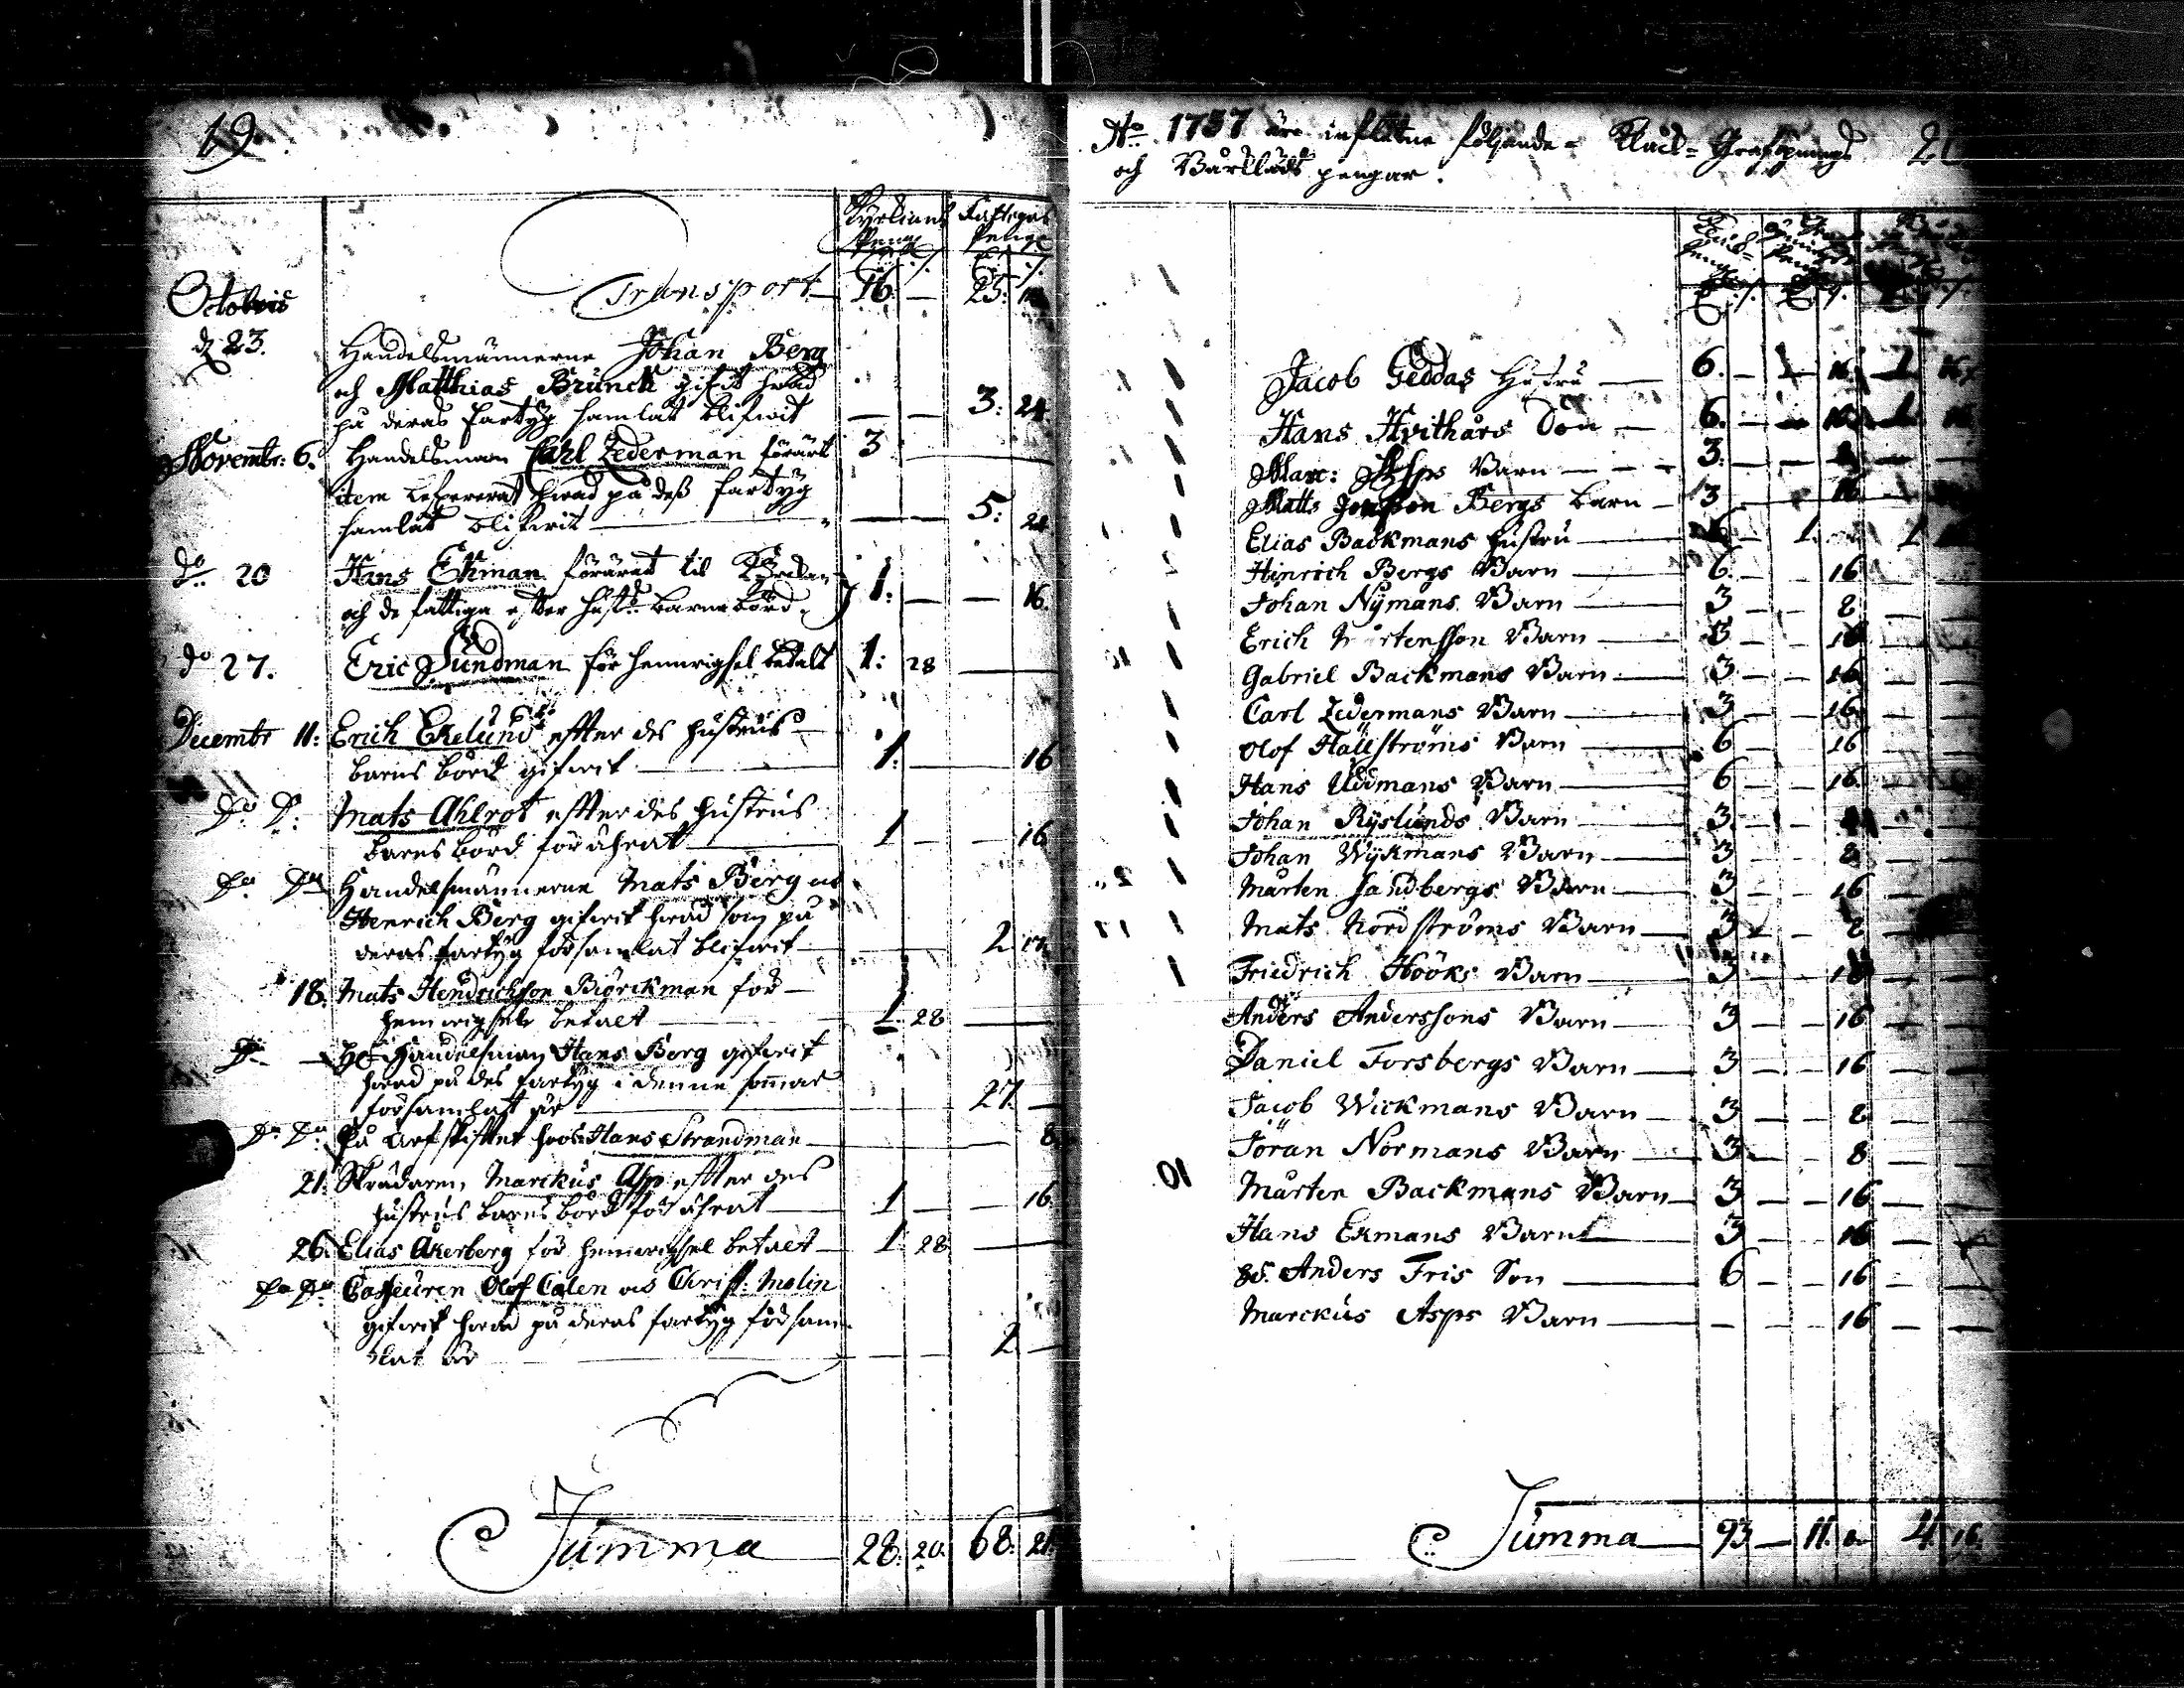 19.
Kyrkians Fattigas
Peng. Peng.
Transport 16. — 25:
Octobris
d 23. Handelsmännerne Johan Berg
och Matthias Brunck gifvit hvad
på deras fartyg samlat blifvit — — 3: 24.
Novembr: 6. Handelsman Carl Zederman förärt 3
item lefvererat hvad på dess fartyg
samlat blifvit — — 5: 24
do 20 Hans Ekman förärat til Kyrckan
och de fattiga efter hust. barnabörd 1: — — 16.
do 27. Eric Sundman för hemvigsel betalt 1: 28 —
Decembr 11: Erich Ekelund efter des hustrus
barns börd gifvit 1: — 16
Do D: Mats Ahlrot efter des hustrus
barns börd förährat 1 — — 16
Do Do Handelsmännerne Mats Berg och
Henrich Berg gifvit hvad som på
deras fartyg församlat blifvit 2
18. Mats Hendrichson Biörckman för
hemvigsel betalt 1. 28 —
Do — Hr Handelsman Hans Berg gifvit
hvad på des fartyg i denne sommar
församlat är 27. —
Do Do På arfskiftet hos Hans Strandman 8
21. Skrädaren Marckus Asp efter des
hustrus barns börd förährat 1 — — 16
26. Elias Åkerberg för hemvigsel betalt 1. 28. —
Do Do Olof Calen och Christ: Molin
gifvit hvad på deras fartyg försam-
lat är — — 2. —
Summa 28. 20. 68. 21.
No. 1757 äro influtne följande Klåck- Graföpnings 20
och Bårklädes pengar.
Jacob Geddas Hustru 6. — 1 16 1 16
Hans Hvithårs Son 6. — — 16 1 16
Marc: Asps Barn 3. — — 8 —
Matts Jonsson Bergs barn 3 — 16 —
Elias Backmans hustru 6 — 1. 1
Hinrich Bergs Barn 6. — — 16 —
Johan Nymans Barn 3 — — 8 —
Erich Mårtensson Barn 3 — — 16 —
Gabriel Backmans Barn 3 — — 16 —
Carl Zedermans Barn 3 — — 16 —
Olof Hällströms Barn 6 — 16 —
Hans Uddmans Barn 6 — — 16. —
Johan Ryslunds Barn 3. — — 8 —
Johan Wykmans Barn 3 — — 8 —
Mårten Sandbergs Barn 3 — — 16 —
Mats Nordströms Barn 3 — — 8 —
Friedrich Hööks Barn 3 — — 16 —
Anders Anderssons Barn 3 — — 16 —
Daniel Forsbergs Barn 3 — — 16 —
Jacob Wickmans Barn 3 — — 8 —
Jöran Normans Barn 3 — — 8 —
Mårten Backmans Barn 3 — — 16 —
Hans Ekmans Barn 3 — — 16 —
Anders Fris Son 6 — — 16 —
Marckus Asps Barn — — — 16 — —
Summa 93 — 11. 8. 4. 16.